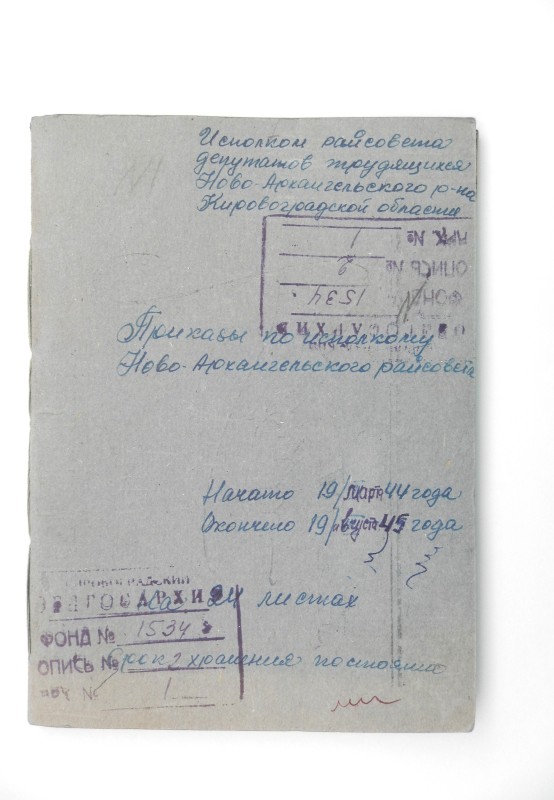 Исполком райсовета
депутатов трудящихся
Ново-Архангельского р-на
Кировоградской области
АРХ. № 1
ОПИСЬ № 2
ФОНД № 1534
ОБЛГОСАРХИВ
Приказы по исполкому
Ново-Архангельского райсовета
Начато 19/марта 44 года
Окончено 19/августа 45 года
КИРОВОГРАДСКИЙ
ОБЛГОСАРХИВ
На 24 листах
ФОНД № 1534
ОПИСЬ № 2
Срок хранения постоянно
АРХ № 1